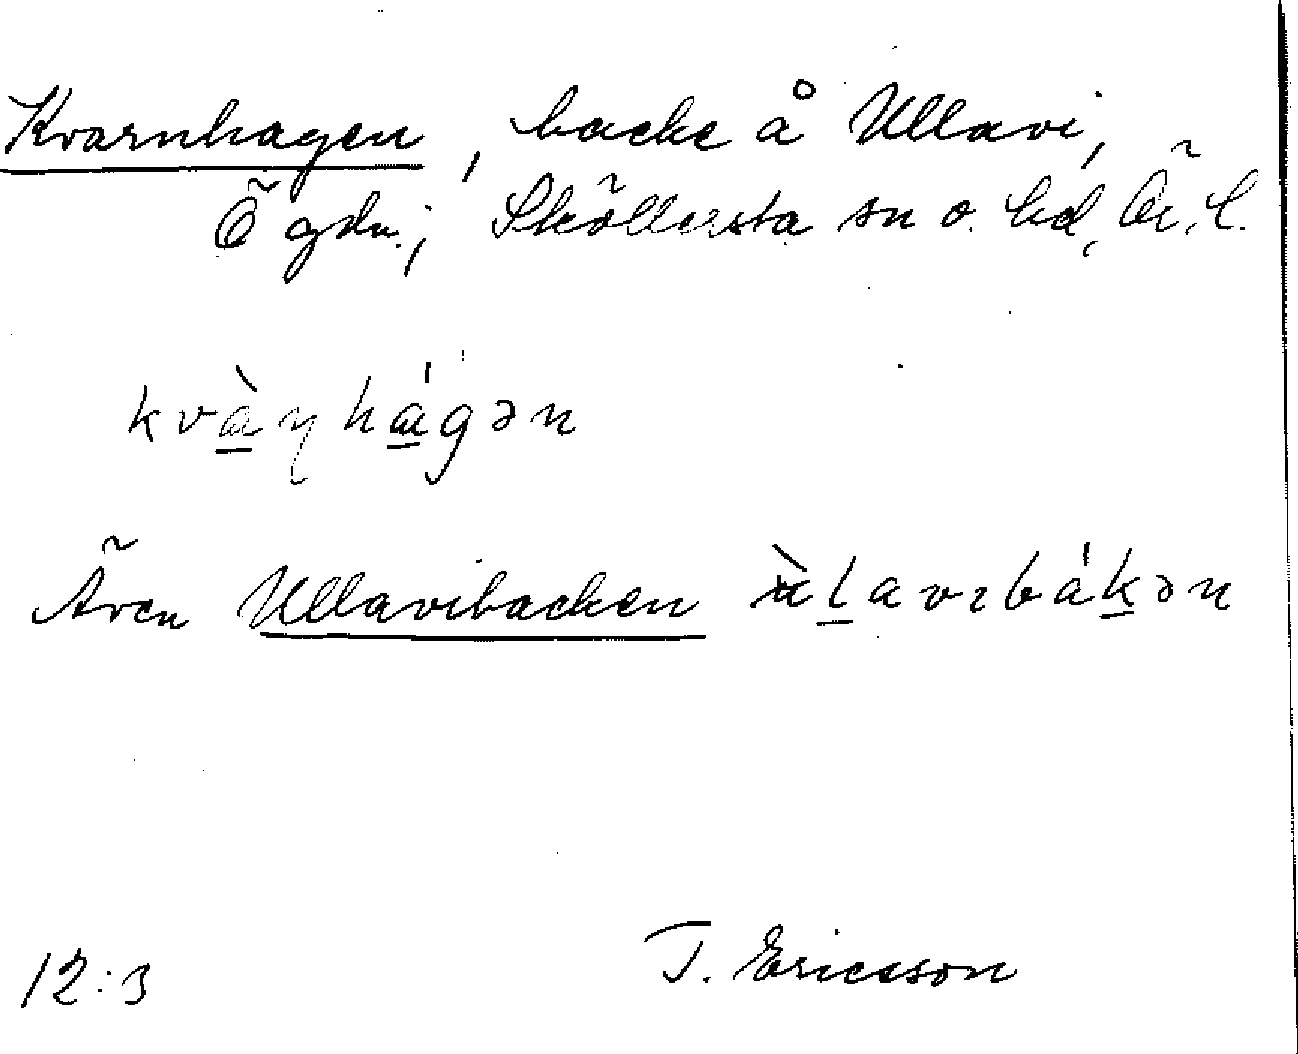 Kvarnhagen, backe å Ullavi,
Ö gdn.; Sköllersta sn o. hd, Ör. l.
kvàꞃhágən
Även Ullavibacken ùlavɪbákən
12:3 T. Ericsson